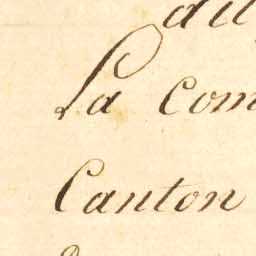 La com
Canton